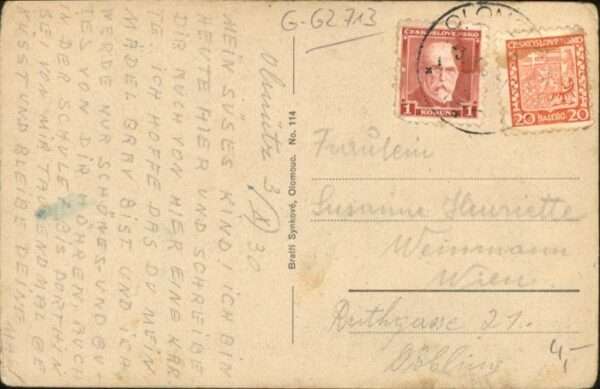 G-G2713
Olmütz 3/XI 30
MEIN SÜSES KIND, ICH BIN
HEUTE HIER UND SCHREIBE
DIR AUCH VON HIER EINE KAR
TE. ICH HOFFE DAS DU MEIN
MÄDEL BRAV BIST UND ICH
WERDE NUR SCHÖNES UND GU-
TES VON DIR HÖREN, AUCH
IN DER SCHULE. BIS DORTHIN
SEI VON MIR TAUSENDMAL GE
KÜSST UND BLEIBE DEINE
Bratři Synkové, Olomouc. No. 114
ČESKOSLOVENSKO
1 KORUNA 1
OLOMOUC
ČESKOSLOVENSKO
20 HALÉŘŮ 20
Fräulein
Susanne Henriette
Weinmann
Wien
Ruthgasse 21.
Döbling
4,-